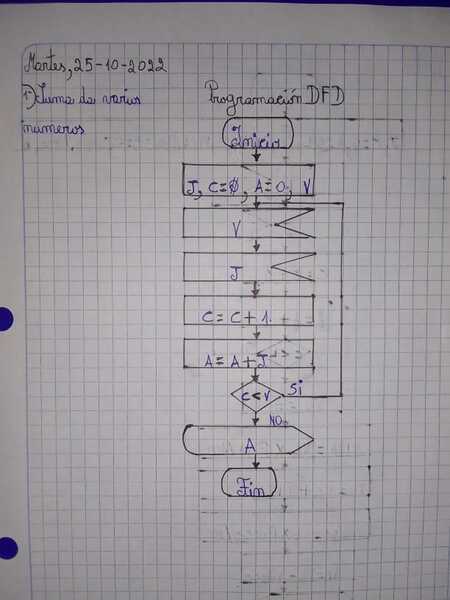 Martes, 25-10-2022
1º) Suma de varios
numeros
Programación DFD
Inicio
J, C=0, A=0, V
V
J
C = C + 1.
A = A + J
C < V
Si
NO
A
Fin